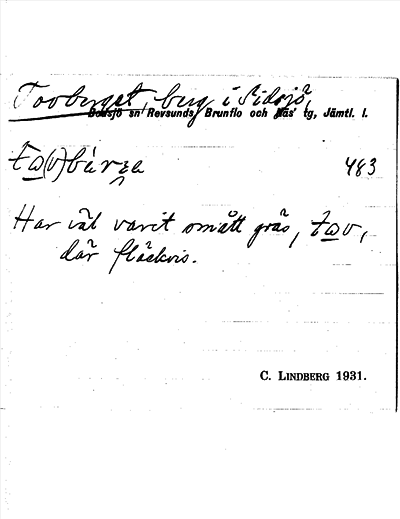 Tovberget, berg i Sidsjö,
Bodsjö sn Revsunds, Brunflo och Näs' tg, Jämtl. l.
483
Har väl varit omått gräs,
där fläckvis.
C. LINDBERG 1931.